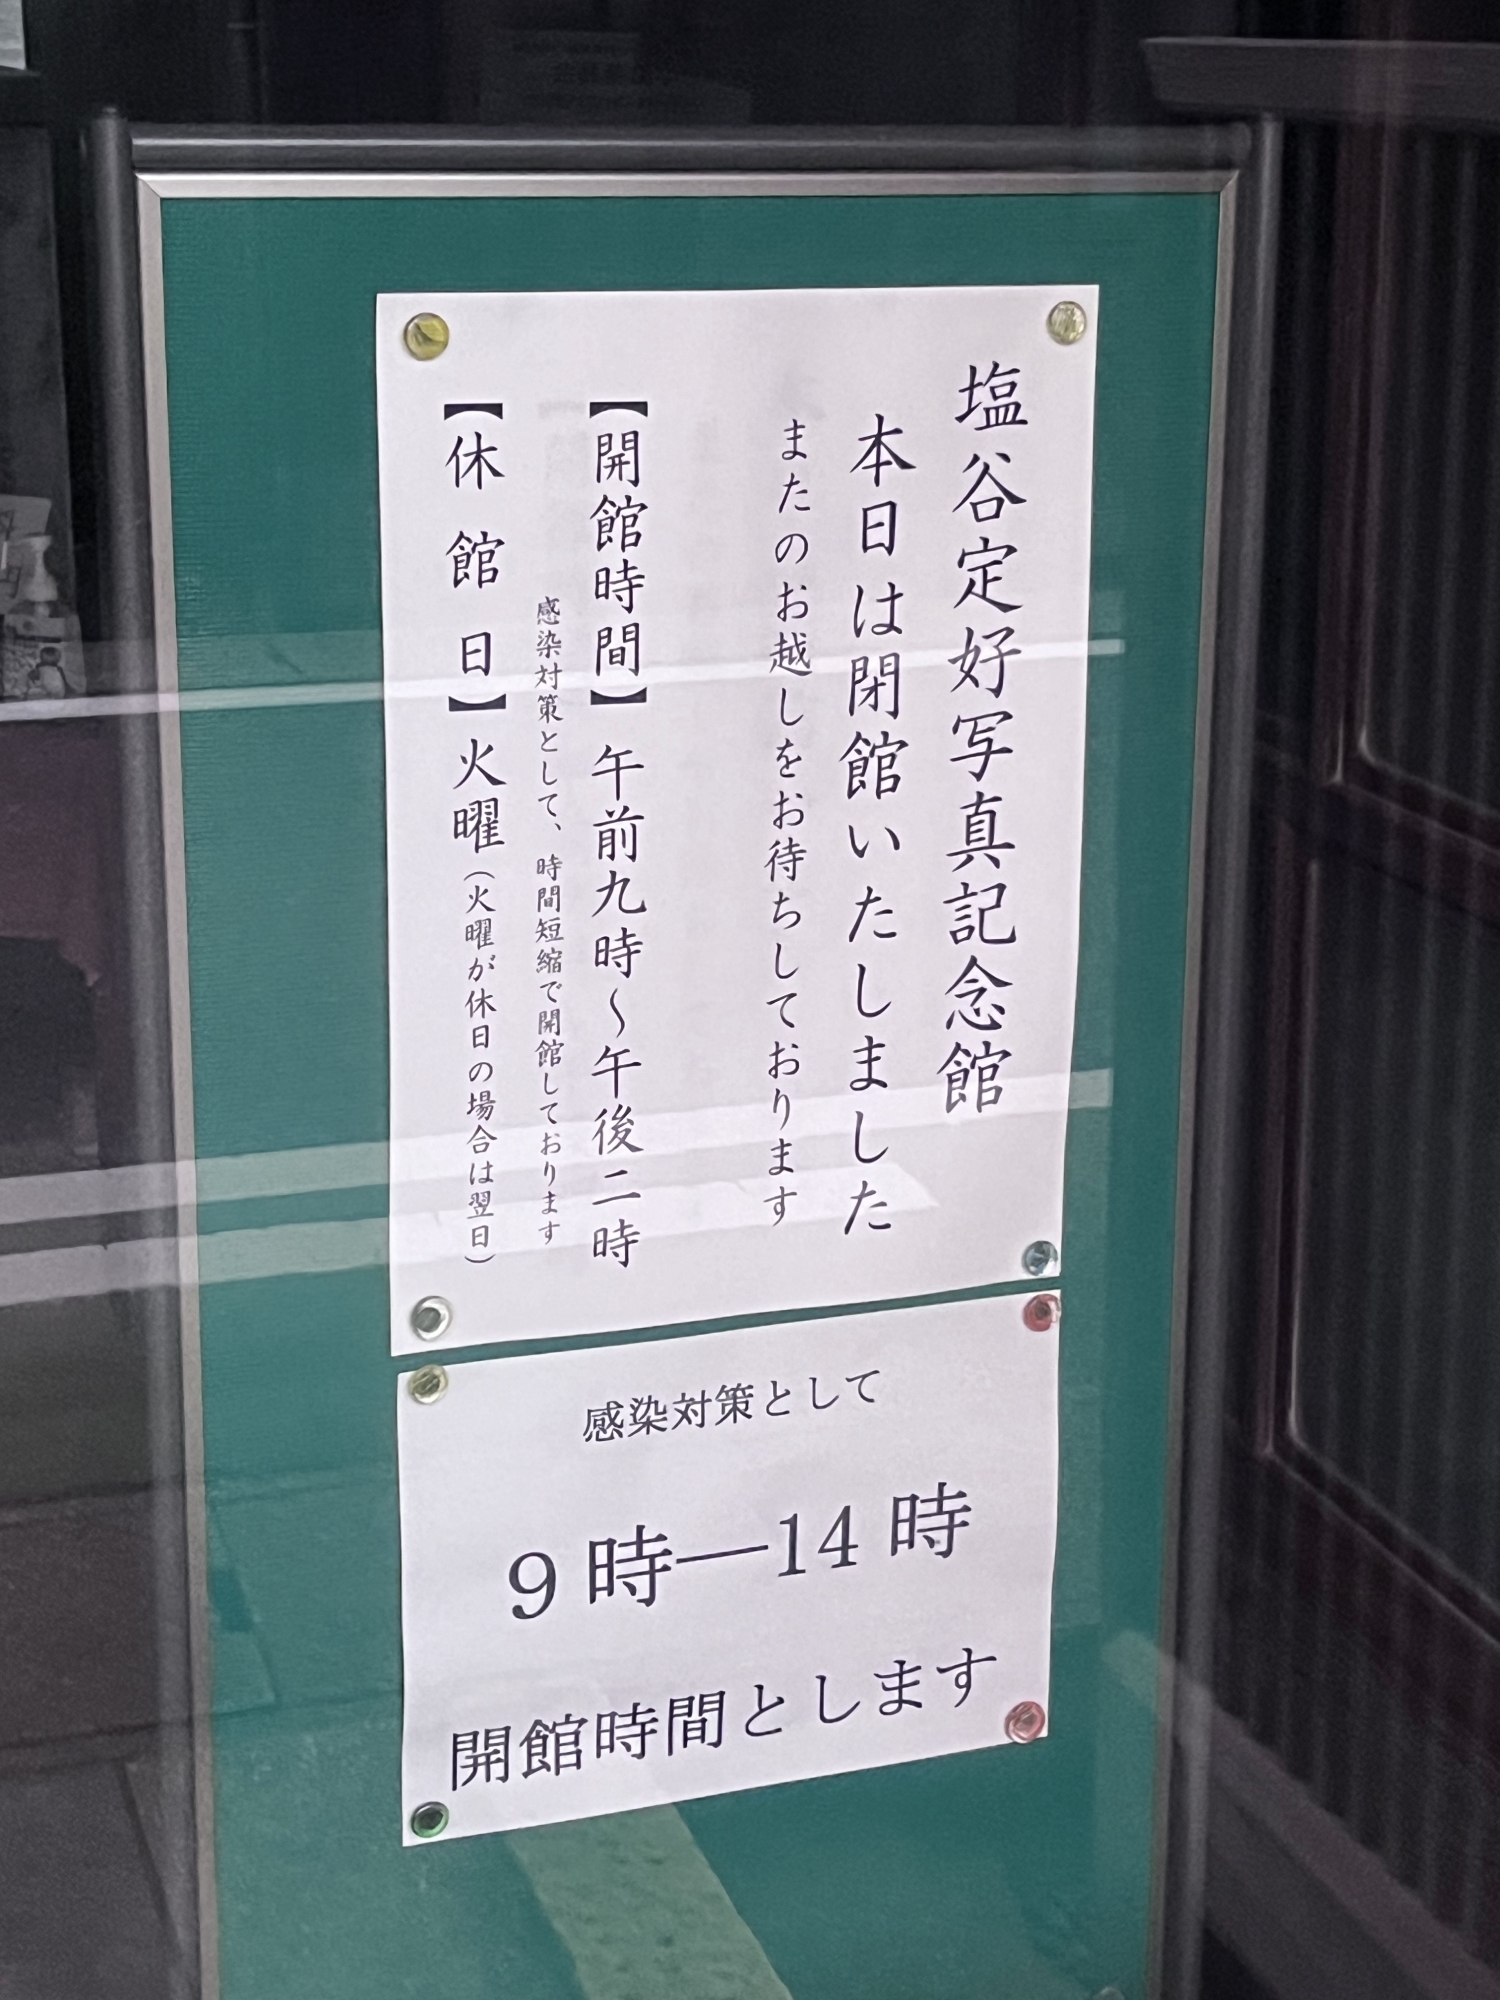 塩谷定好写真記念館
本日は閉館いたしました
またのお越しをお待ちしております
【開館時間】午前九時～午後二時
感染対策として、時間短縮で開館しております
【休館日】火曜（火曜が休日の場合は翌日）
感染対策として
9時―14時
開館時間とします